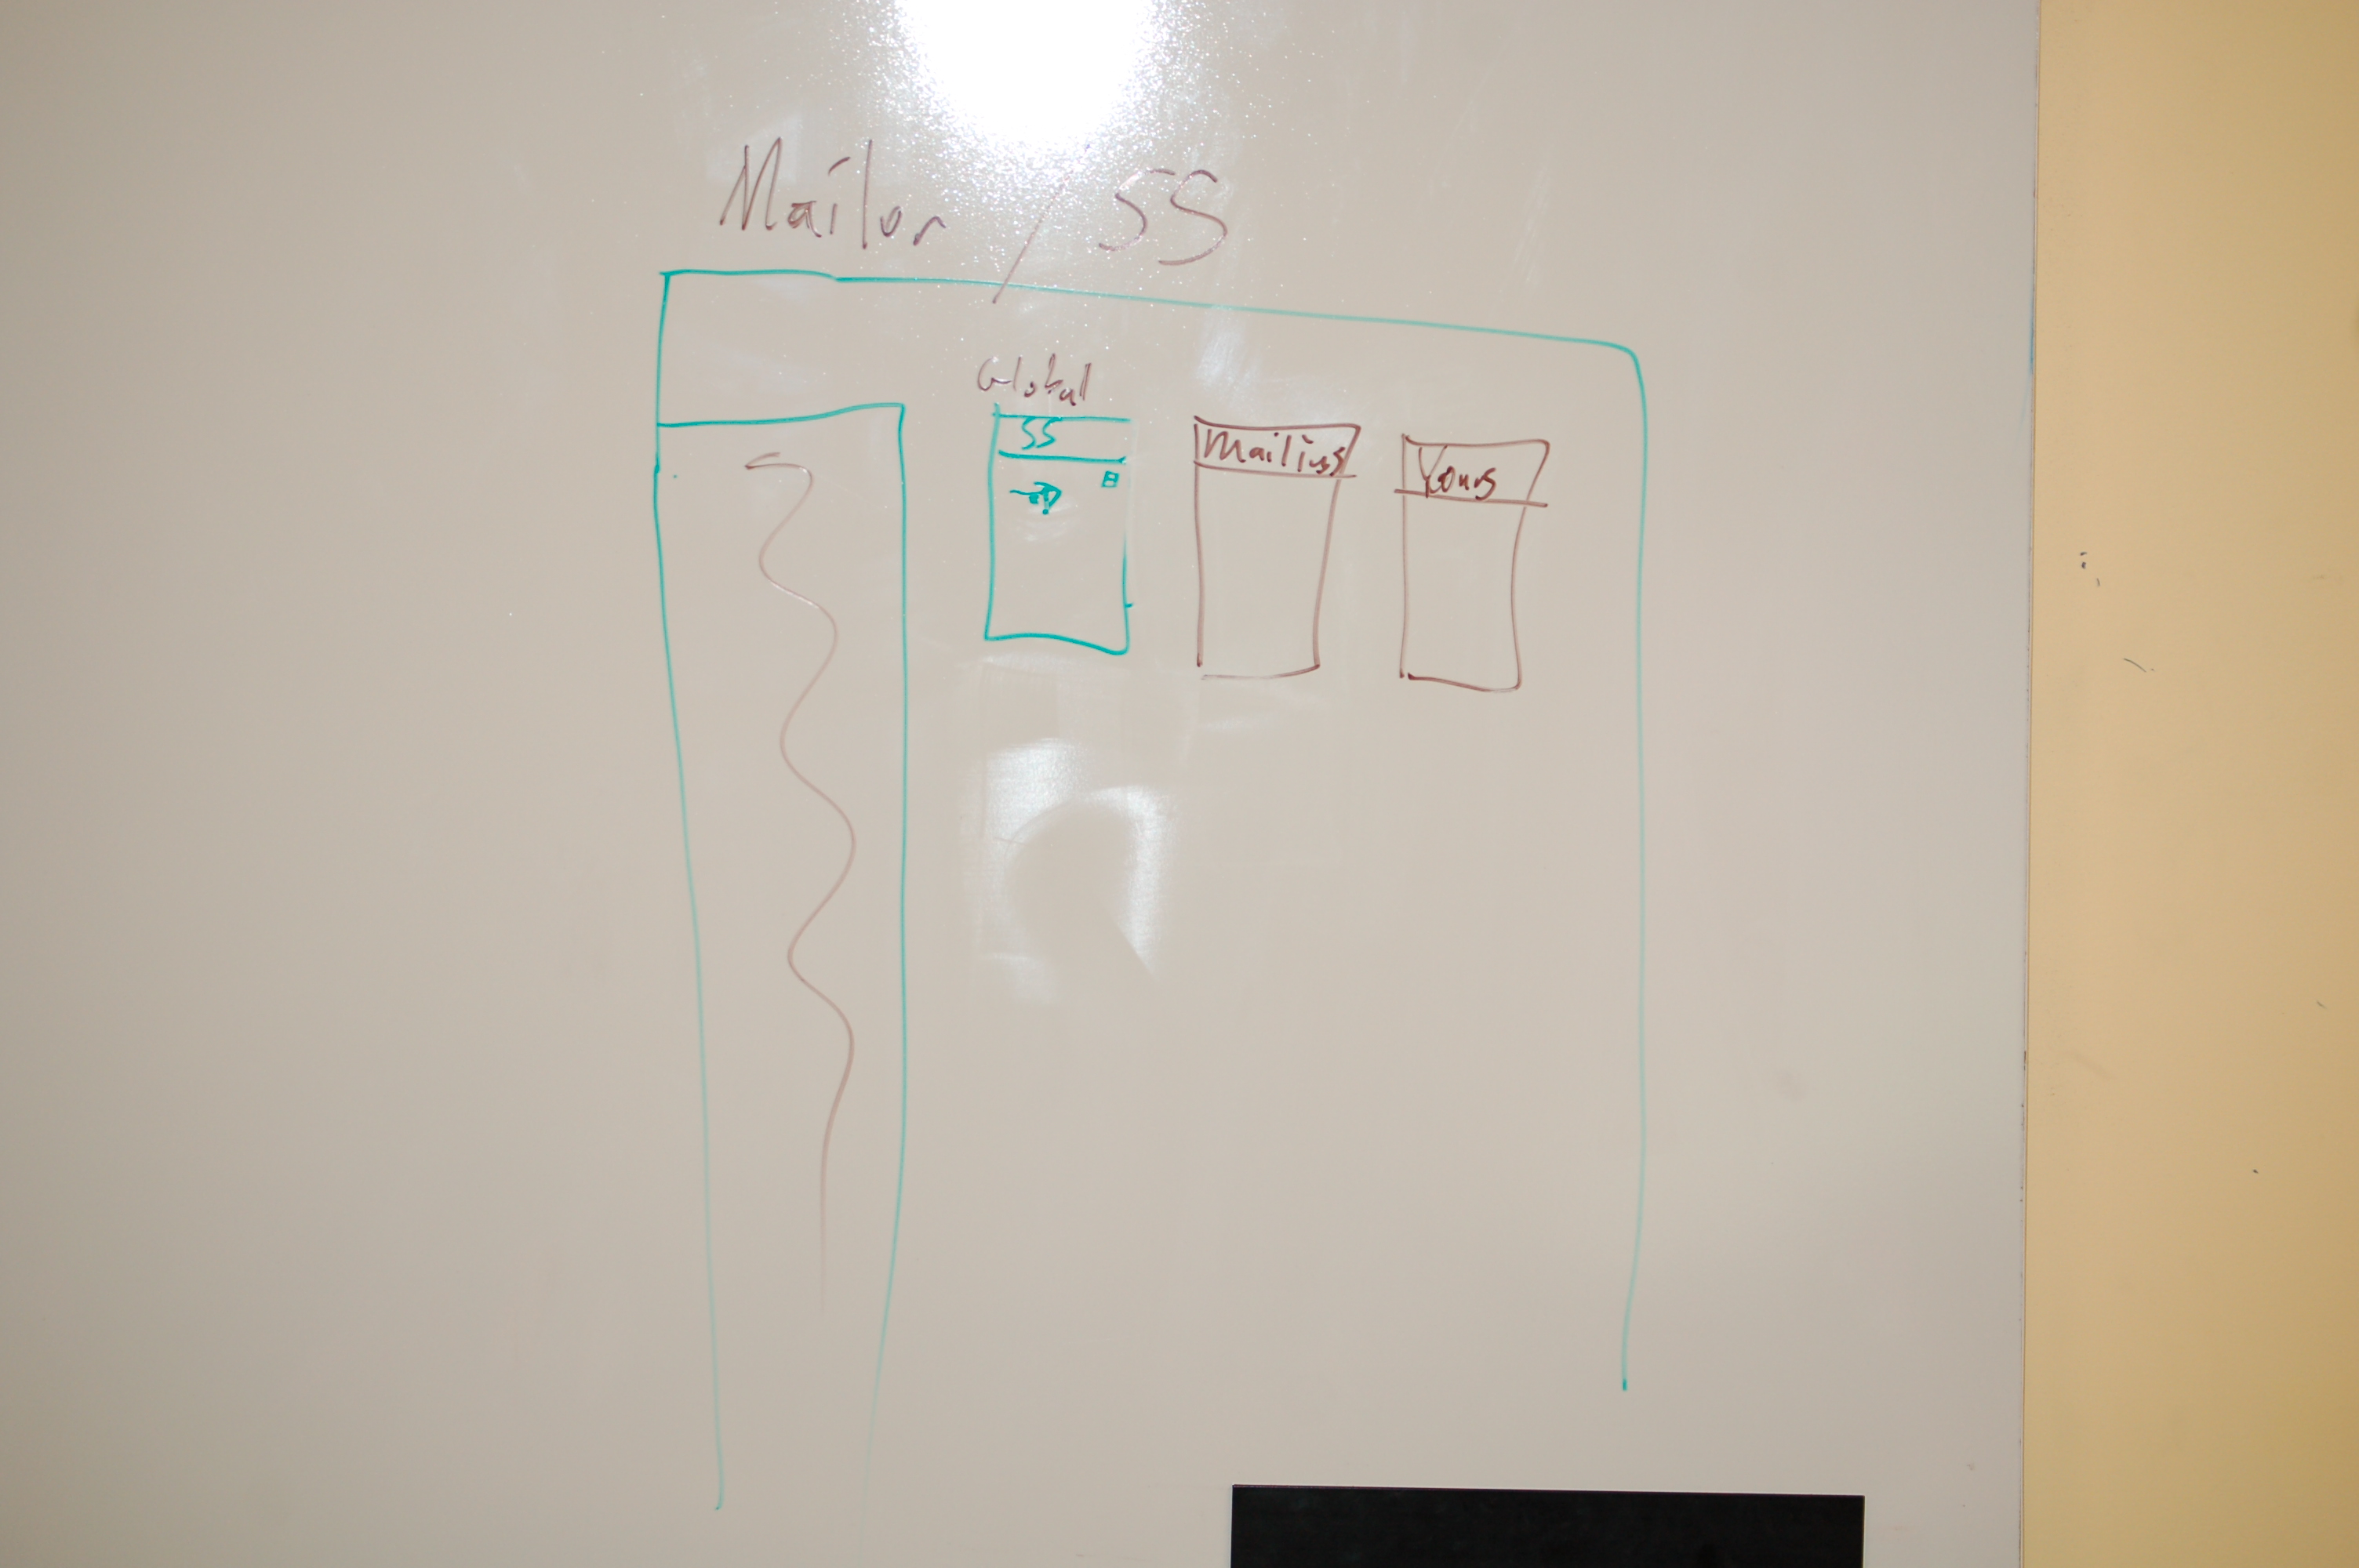 Mailer / SS
Global
SS
Mailings
Yours